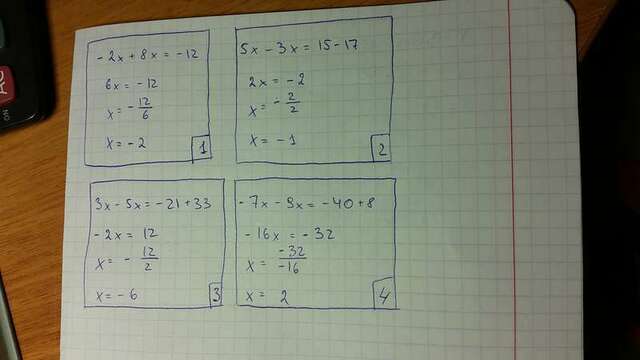 -2x + 8x = -12
6x = -12
x = - 12/6
x = -2
1
5x - 3x = 15 - 17
2x = -2
x = - 2/2
x = -1
2
3x - 5x = -21 + 33
-2x = 12
x = - 12/2
x = -6
3
-7x - 9x = -40 + 8
-16x = -32
x = -32/-16
x = 2
4
ON
AC